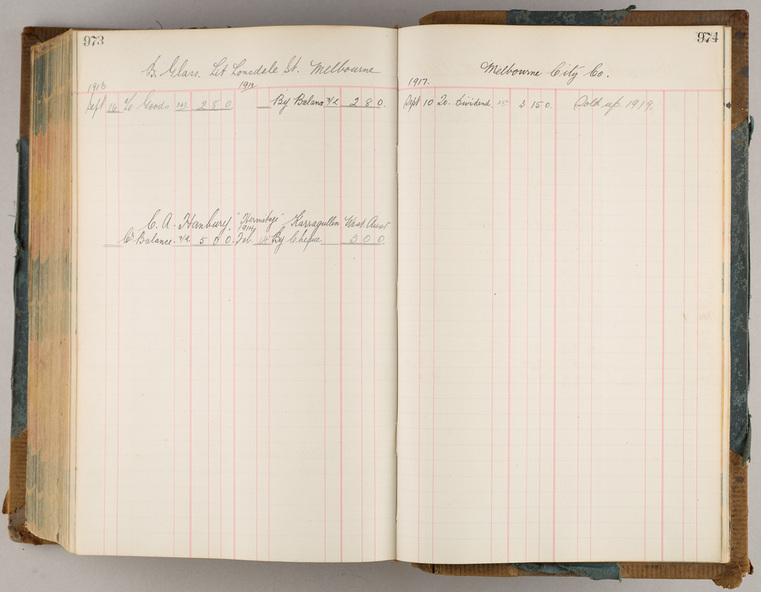 973
B. Glass. Lit Lonsdale St. Melbourne
1918 1919
Sept 16 To Goods 2 8 0 By Balance 2 8 0
C. A. Hanbury. "Hermitage" Karragullen West Aust
1919
To Balance 5 0 0 Feb By Cheque 5 0 0
974
Melbourne City Co.
1917.
Sept 10 To Dividend 3 15 0. Sold up 1919.